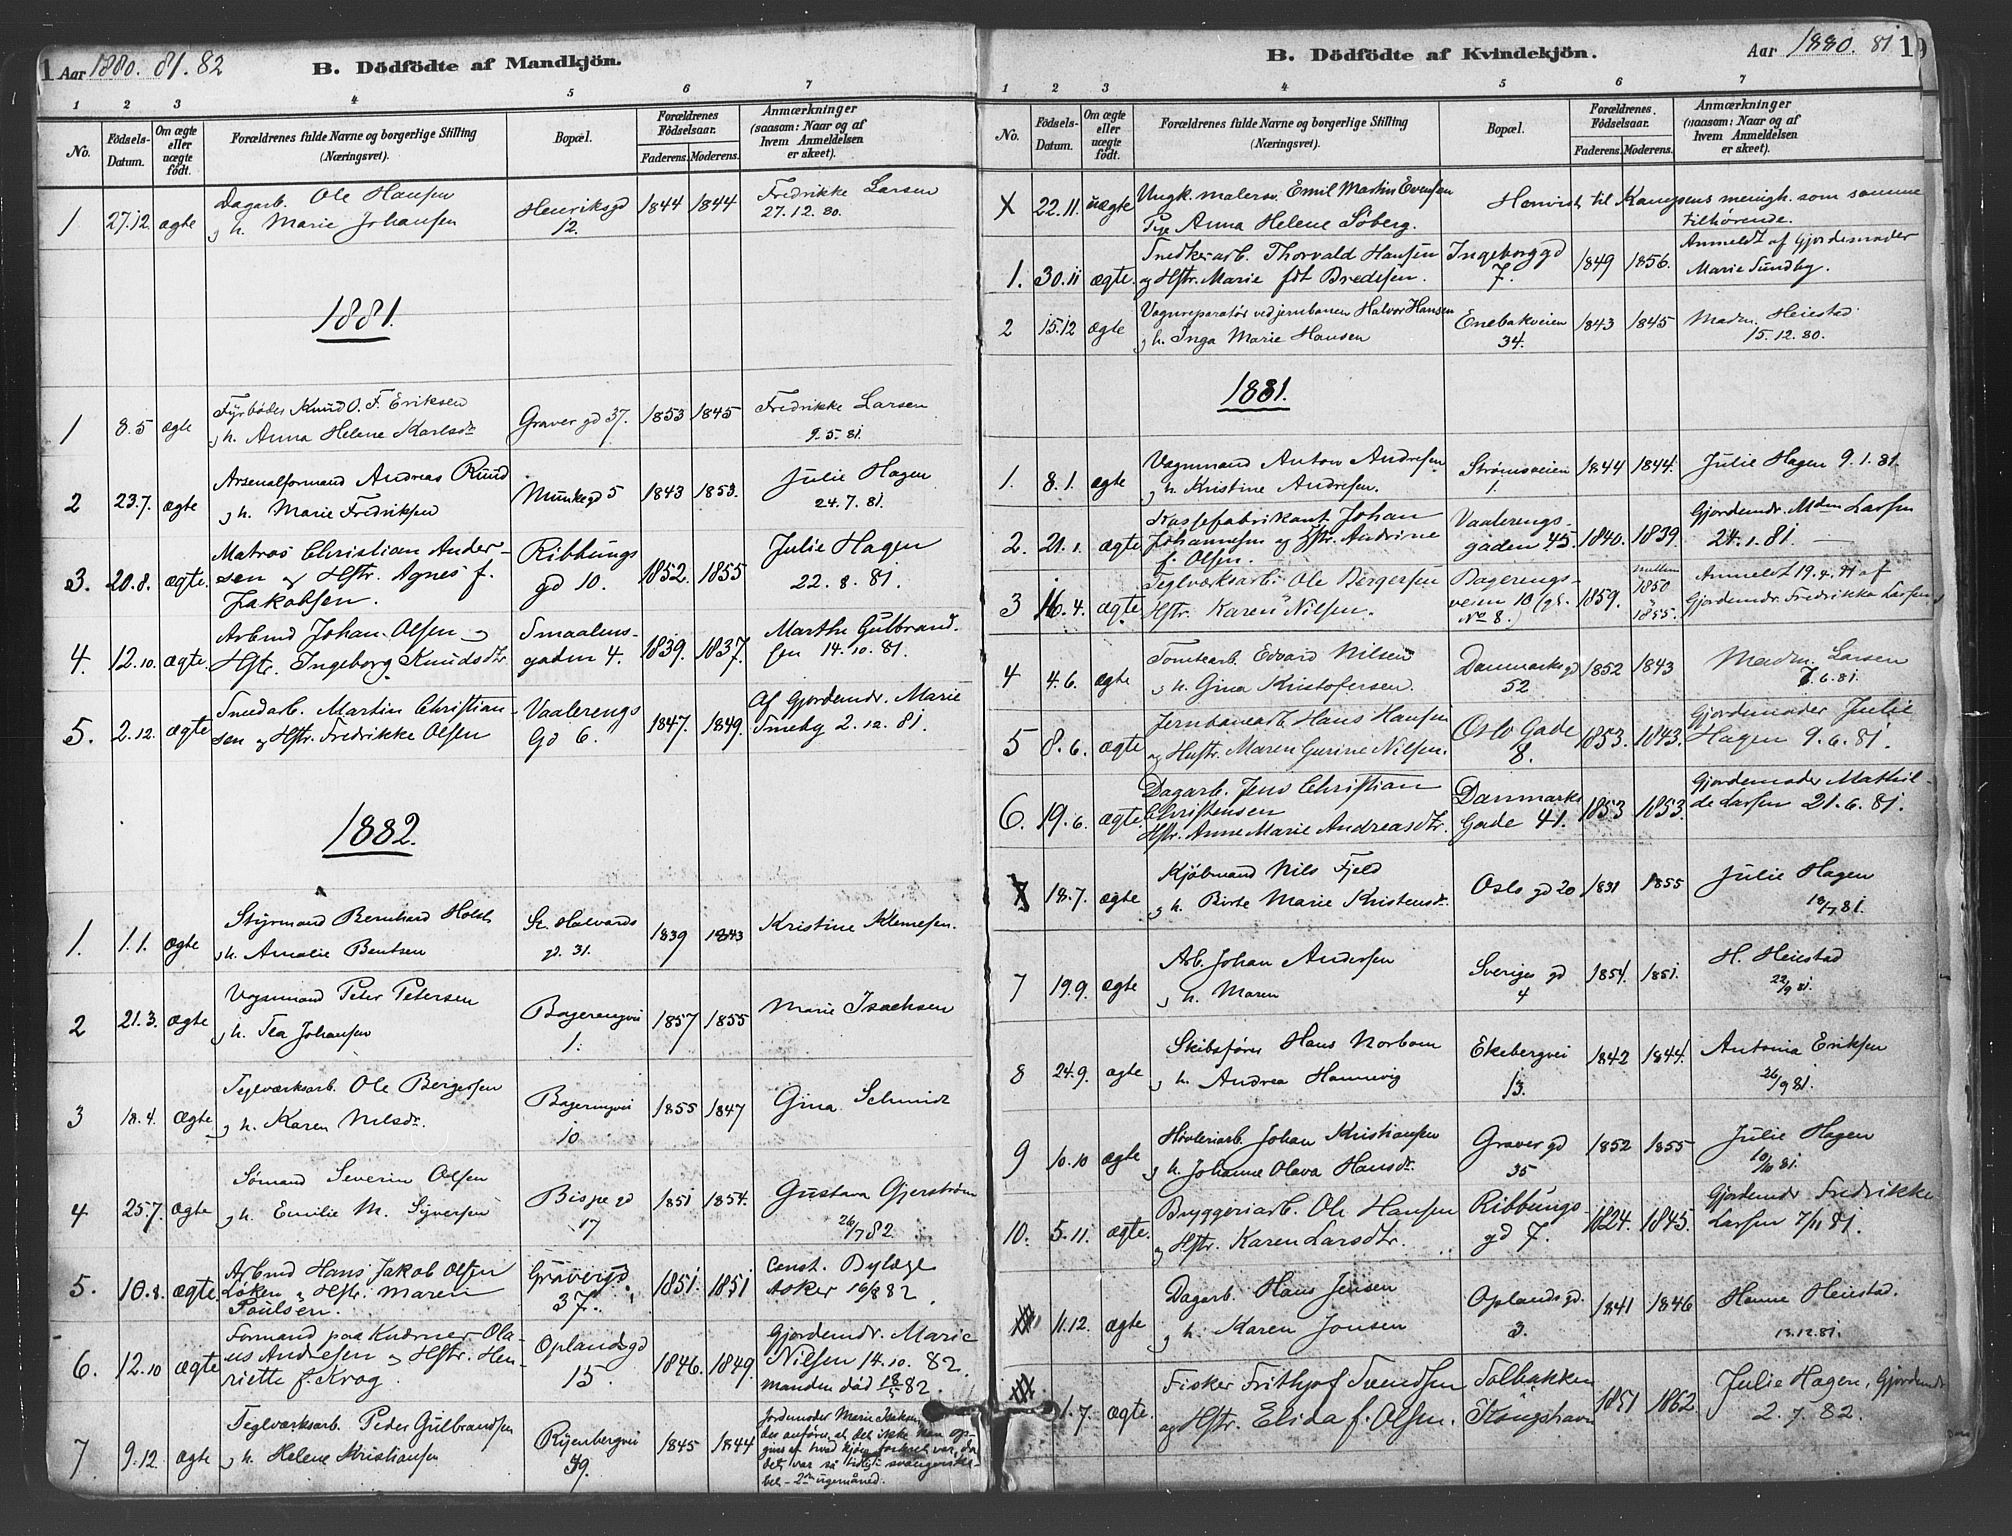 1 Aar 1880. 81. 82
B. Dödfödte af Mandkjön.
1 2 3 4 5 6 7
No. Födsels-Datum. Om ægte eller uægte födt. Forældrenes fulde Navne og borgerlige Stilling (Næringsvei). Bopæl. Forældrenes Födselsaar. Faderens. Moderens. Anmærkninger (saasom: Naar og af hvem Anmeldelsen er skeet).
1 27.12. ægte Dagarb. Ole Hansen Henriksgd 1844 1844 Fredrikke Larsen
h. Marie Johansen 12. 27.12.80.
1881.
1 8.5 ægte Fyrbøder Knud O. F. Eriksen Graver gd 37. 1853 1845 Fredrikke Larsen
h. Anna Helene Karlsdr 9.5.81.
2 23.7. ægte Arsenalformand Andreas Ruud Munkegd 5 1843 1853. Julie Hagen
h. Marie Fredriksen 24.7.81.
3. 20.8. ægte. Matros Christian Ander- Ribbungs 1852. 1855 Julie Hagen
sen og Hstr. Agnes f. gd 10. 22.8.81.
Jakobsen.
4. 12.10. ægte. Arbmd Johan Olsen og Smaalens- 1839. 1837. Marthe Gulbrand.
Hstr. Ingeborg Knudsdtr. gaden 4. sen 14.10.81.
5. 2.12. ægte Smedarb. Martin Christian- Vaalerengs 1847. 1849. Af Gjordemdr. Marie
sen og Hstr. Fredrikke Olsen Gd 6. Smeby 2.12.81.
1882.
1. 1.1. ægte Styrmand Bernhard Holst St. Halvards 1839 1843 Kristine Klemesen.
h. Amalie Bentsen gd. 31.
2 21.3. ægte Vognmand Peter Petersen Bagerengvei 1857 1855 Marie Isachsen
h. Tea Johansen 1.
3 18.4. ægte Teglværksarb. Ole Bergersen Bagerengvei 1855 1847 Gina Schmidt
h. Karen Nilsdr. 10
4 25.7. ægte Sømand Severin Olsen Bispegd 1851 1854. Gustava Gjerstrøm
h. Emilie M. Syversen 17 26/7 82
5. 10.8. ægte. Arbmd Hans Jakob Olsen Gravergd. 1851. 1851 Const.
Løken og Hstr. Maren 37. Asker 16/8 82
Poulsen.
6. 12.10 ægte Formand paa Ola- Oplandsgd 1846. 1849. Gjordemdr. Marie
us Andresen og Hstr. Hen- 15. Nilsen 14.10.82
riette f. Krog. Manden död 82.
7 9.12. ægte Teglværksarb. Peder Gulbrandsen Ryenbergvei 1845 1844 Jordemoder Marie Isaksen
h. Helene Kristiansen 39. anfører, at det ikke kan op-
gives af hvad kjøn fostret var, da
det var så tidligt svangerska-
bet - ugemåned.
B. Dödfödte af Kvindekjön.
Aar 1880. 81. 19
1 2 3 4 5 6 7
No. Födsels-Datum. Om ægte eller uægte födt. Forældrenes fulde Navne og borgerlige Stilling (Næringsvei). Bopæl. Forældrenes Födselsaar. Faderens. Moderens. Anmærkninger (saasom: Naar og af hvem Anmeldelsen er skeet).
X 22.11. uægte Ungk. malersv. Emil Martin Evensen Henvist til Kampens menigh. som samme
Pge Anna Helene Söberg. tilhørende.
1. 30.11 ægte. Snedkerarb. Thorvald Hansen Ingeborg gd 1849 1856. Anmeldt af Gjordemoder
og Hstr. Marie fdt Bredesen. 7. Marie Sundby.
2 15.12 ægte Vognreparatör ved jernbanen Halvor Hansen Enebakveien 1843 1845 Madm. Heiestad
h. Inga Marie Hansen 34. 15.12.80.
1881.
1. 8.1. ægte Vognmand Anton Andresen Strømsveien 1844 1844. Julie Hagen 9.1.81.
h. Kristine Andresen. 1.
2. 21.1. ægte Kassefabrikant Johan Vaalerengs- 1840. 1839. Gjordemdr. Mdm Larsen
Johannesen og Hstr. Andrine gaden 45. 24.1.81. —
f. Olsen.
3 16.4. ægte Teglværksarb. Ole Bergersen Bagerengs- 1859. mellem 1850 1855. Anmeldt 19.4.81 af
Hstr. Karen Nilsen. veien 10 (gl. No 8.) Gjordemdr. Fredrikke Larsen
4 4.6. ægte Tomtearb. Edvard Nilsen Danmarksgd 1852 1843 Madm. Larsen
h. Gina Kristofersen. 52 7.6.81.
5 8.6. ægte Jernbanearb. Hans Hansen Oslo Gade 1853. 1843. Gjordemoder Julie
og Hustr. Maren Gurine Nilsen. 8. Hagen 9.6.81.
6. 19.6. ægte Dagarb. Jens Christian Danmarks 1853 1853. Gjordemoder Mathil-
Christensen Gade 41. de Larsen 21.6.81.
Hstr. Anne Marie Andreasdtr.
7 18.7. ægte Kjøbmand Nils Fjeld Oslo gd 20 1831 1855 Julie Hagen
h. Birte Marie Kristensdr. 18/7 81.
7 19.9. ægte Arb. Johan Andersen Sveriges gd 1854. 1851. H. Heiestad
h. Maren 4 22/9 81.
8 24.9. ægte Skibsfører Hans Norbom Ekebergvei 1842 1844. Antonia Eriksen
h. Andrea Hannevig 13. 26/9 81.
9 10.10 ægte Høvleriarb. Johan Kristiansen Graver gd 1852 1855 Julie Hagen
h. Johanne Olava Hansdr. 35 10/10 81.
10. 5.11. ægte. Bryggeriarb. Ole Hansen Ribbungs- 1824. 1845. Gjordemdr Fredrikke
og Hstr. Karen Larsdtr. gd 7. Larsen 7/11 81.
11.12. ægte Dagarb. Hans Jensen Oplandsgd. 1841 1846 Hanne Heiestad.
h. Karen Jonsen 3. 13.12.81.
1.7. ægte. Fisker Frithjof Svendsen Solbakken 1851 1862. Julie Hagen, Gjordemdr
og Hstr. Elida f. Olsen. 2.7.82.